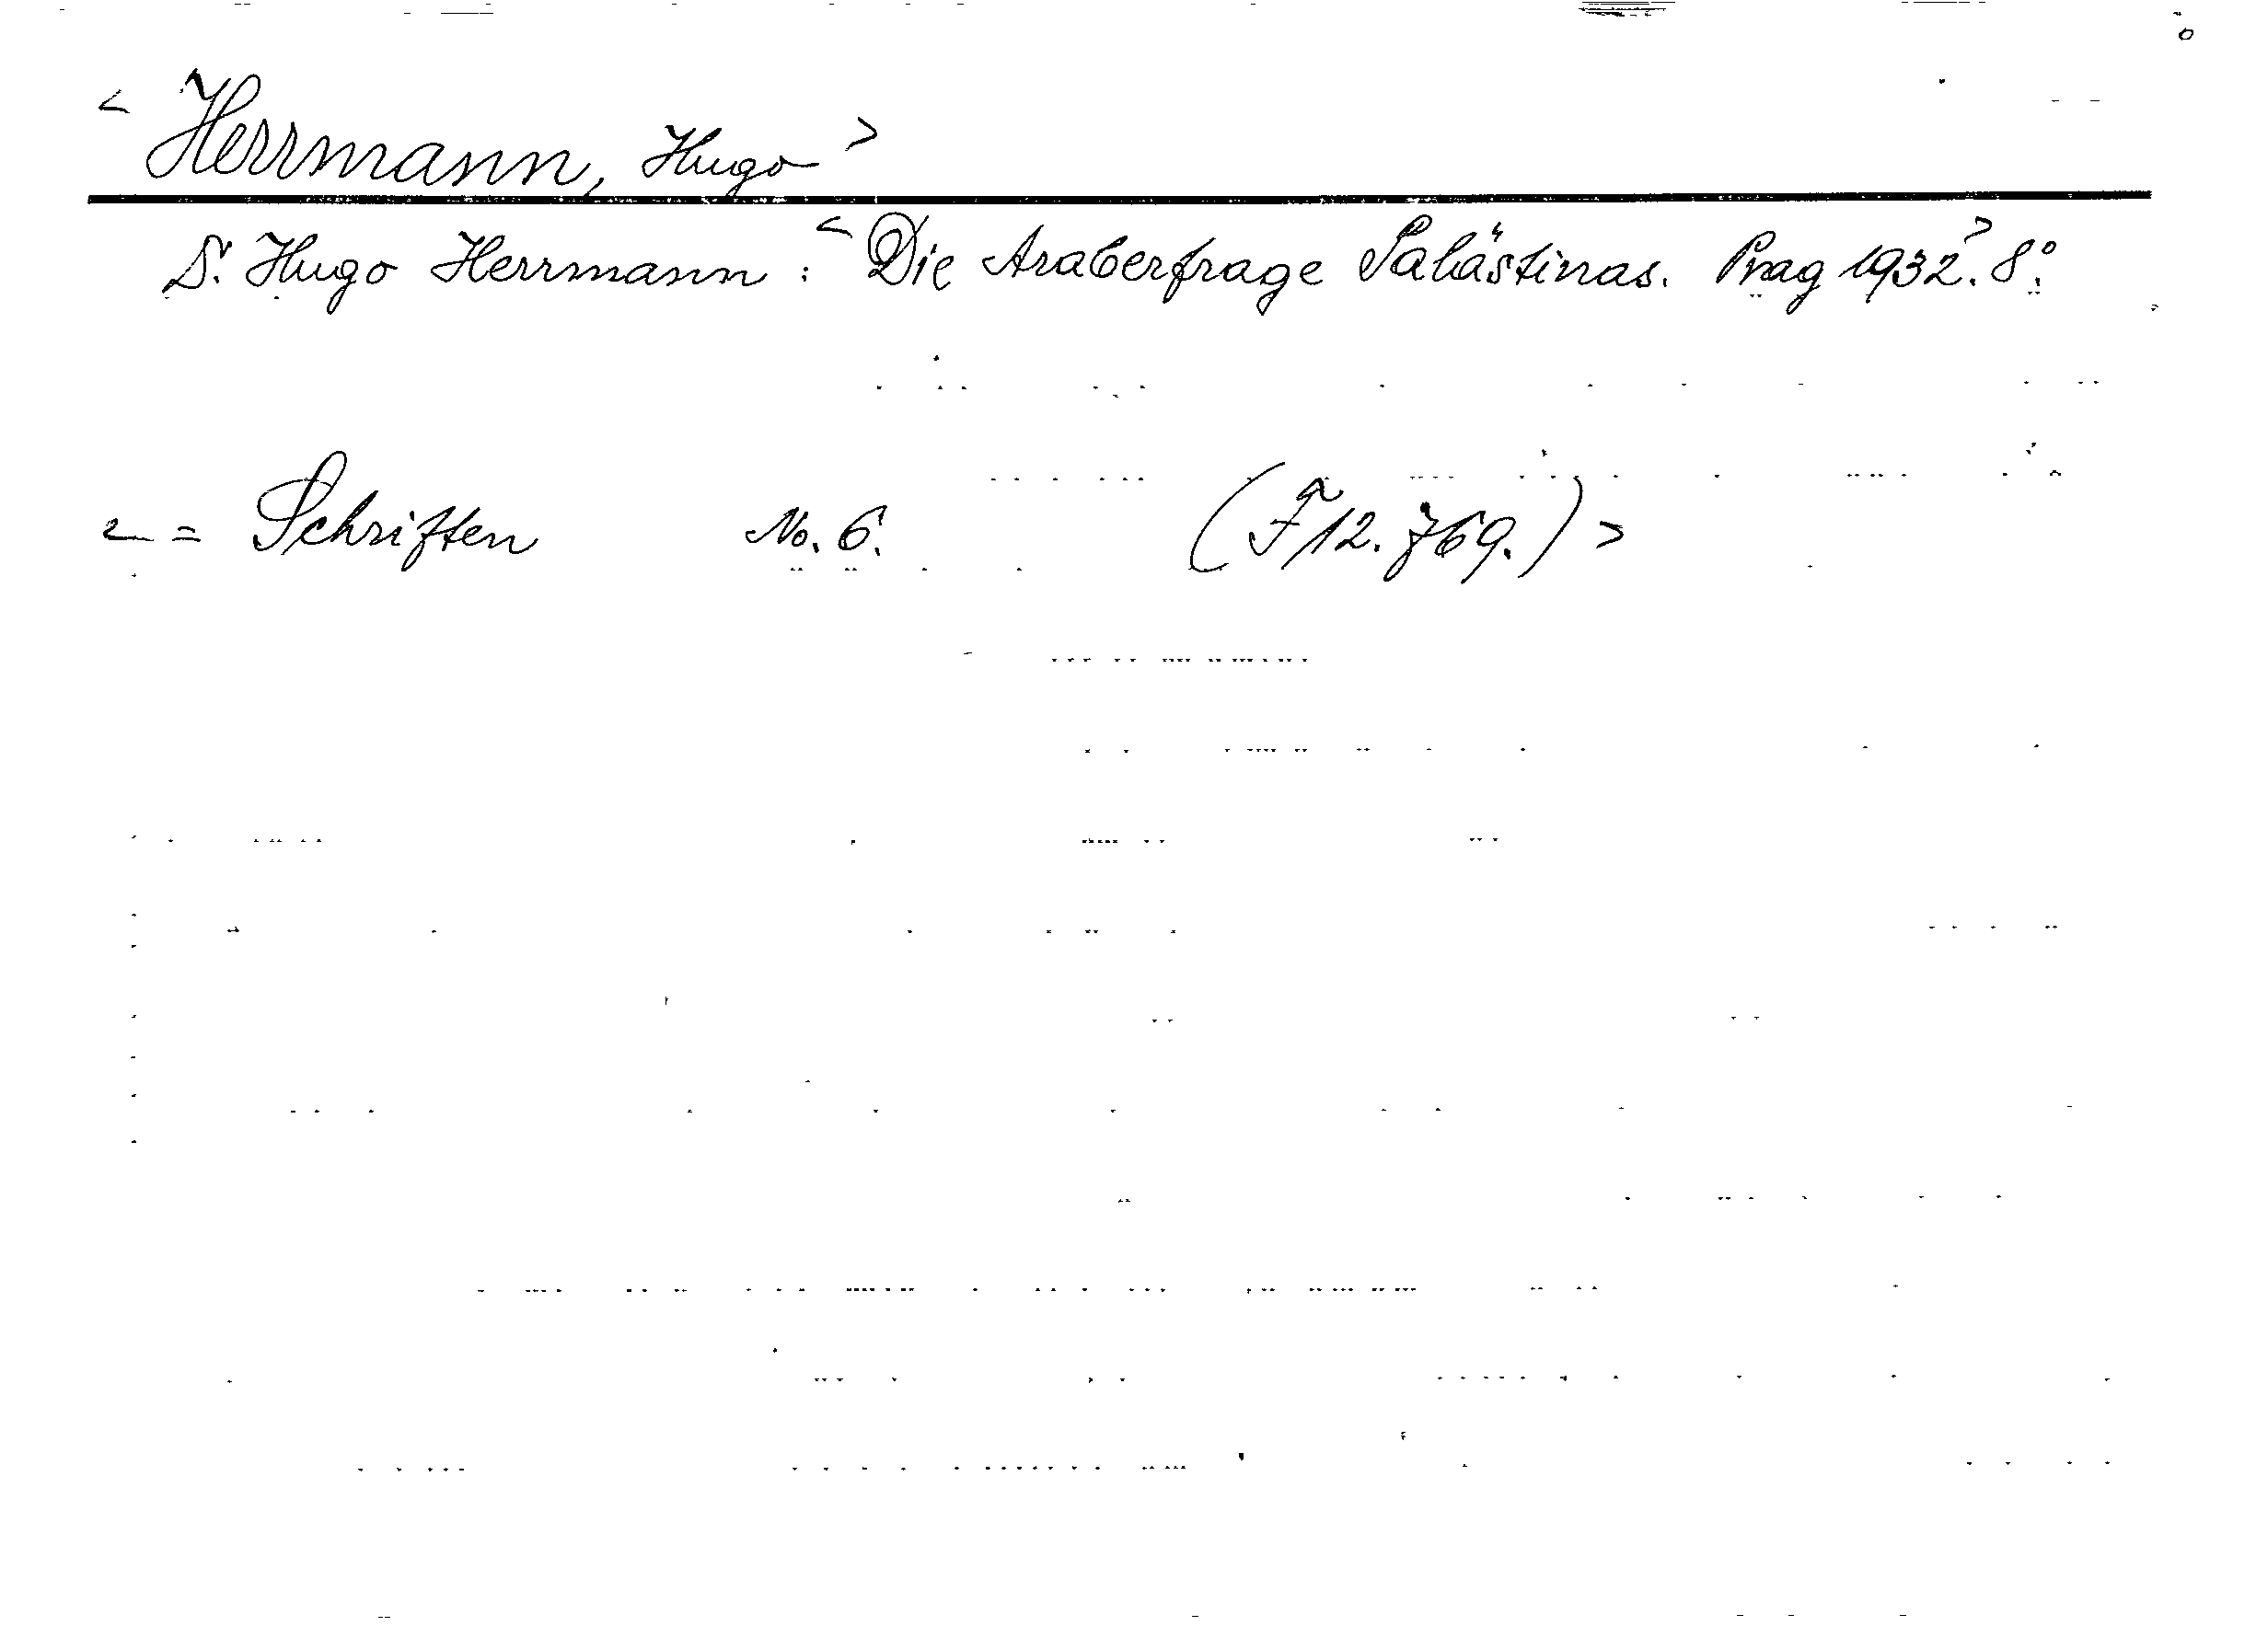 < Herrmann, Hugo >
D. Hugo Herrmann: < Die Araberfrage Palästinas. Prag 1932.> 8°.
< = Schriften No. 6. (F 12.769.) >